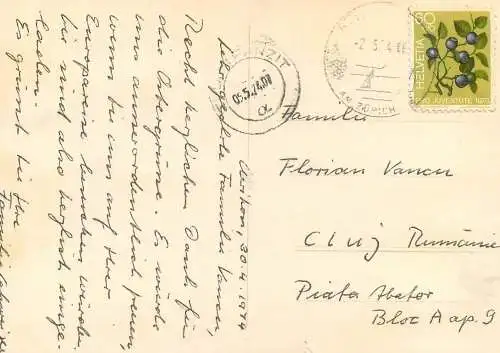 Uerikon, 30.4.1974
Liebe geehrte Familie Vancu,
Recht herzlichen Dank für
die Ostergrüsse. Es würde
uns ausserordentlich freuen,
wenn Sie uns auf Ihrer
Europareise besuchen würden.
Sie sind also herzlich einge-
laden.
Es grüsst Sie Ihre
Familie
TRANZIT
05.5.74.01
-2.5.74
AM ZÜRICH
60
HELVETIA
PRO JUVENTUTE 1973
Familie
Florian Vancu
Cluj Rumänien
Piata Abator
Bloc A ap. 9